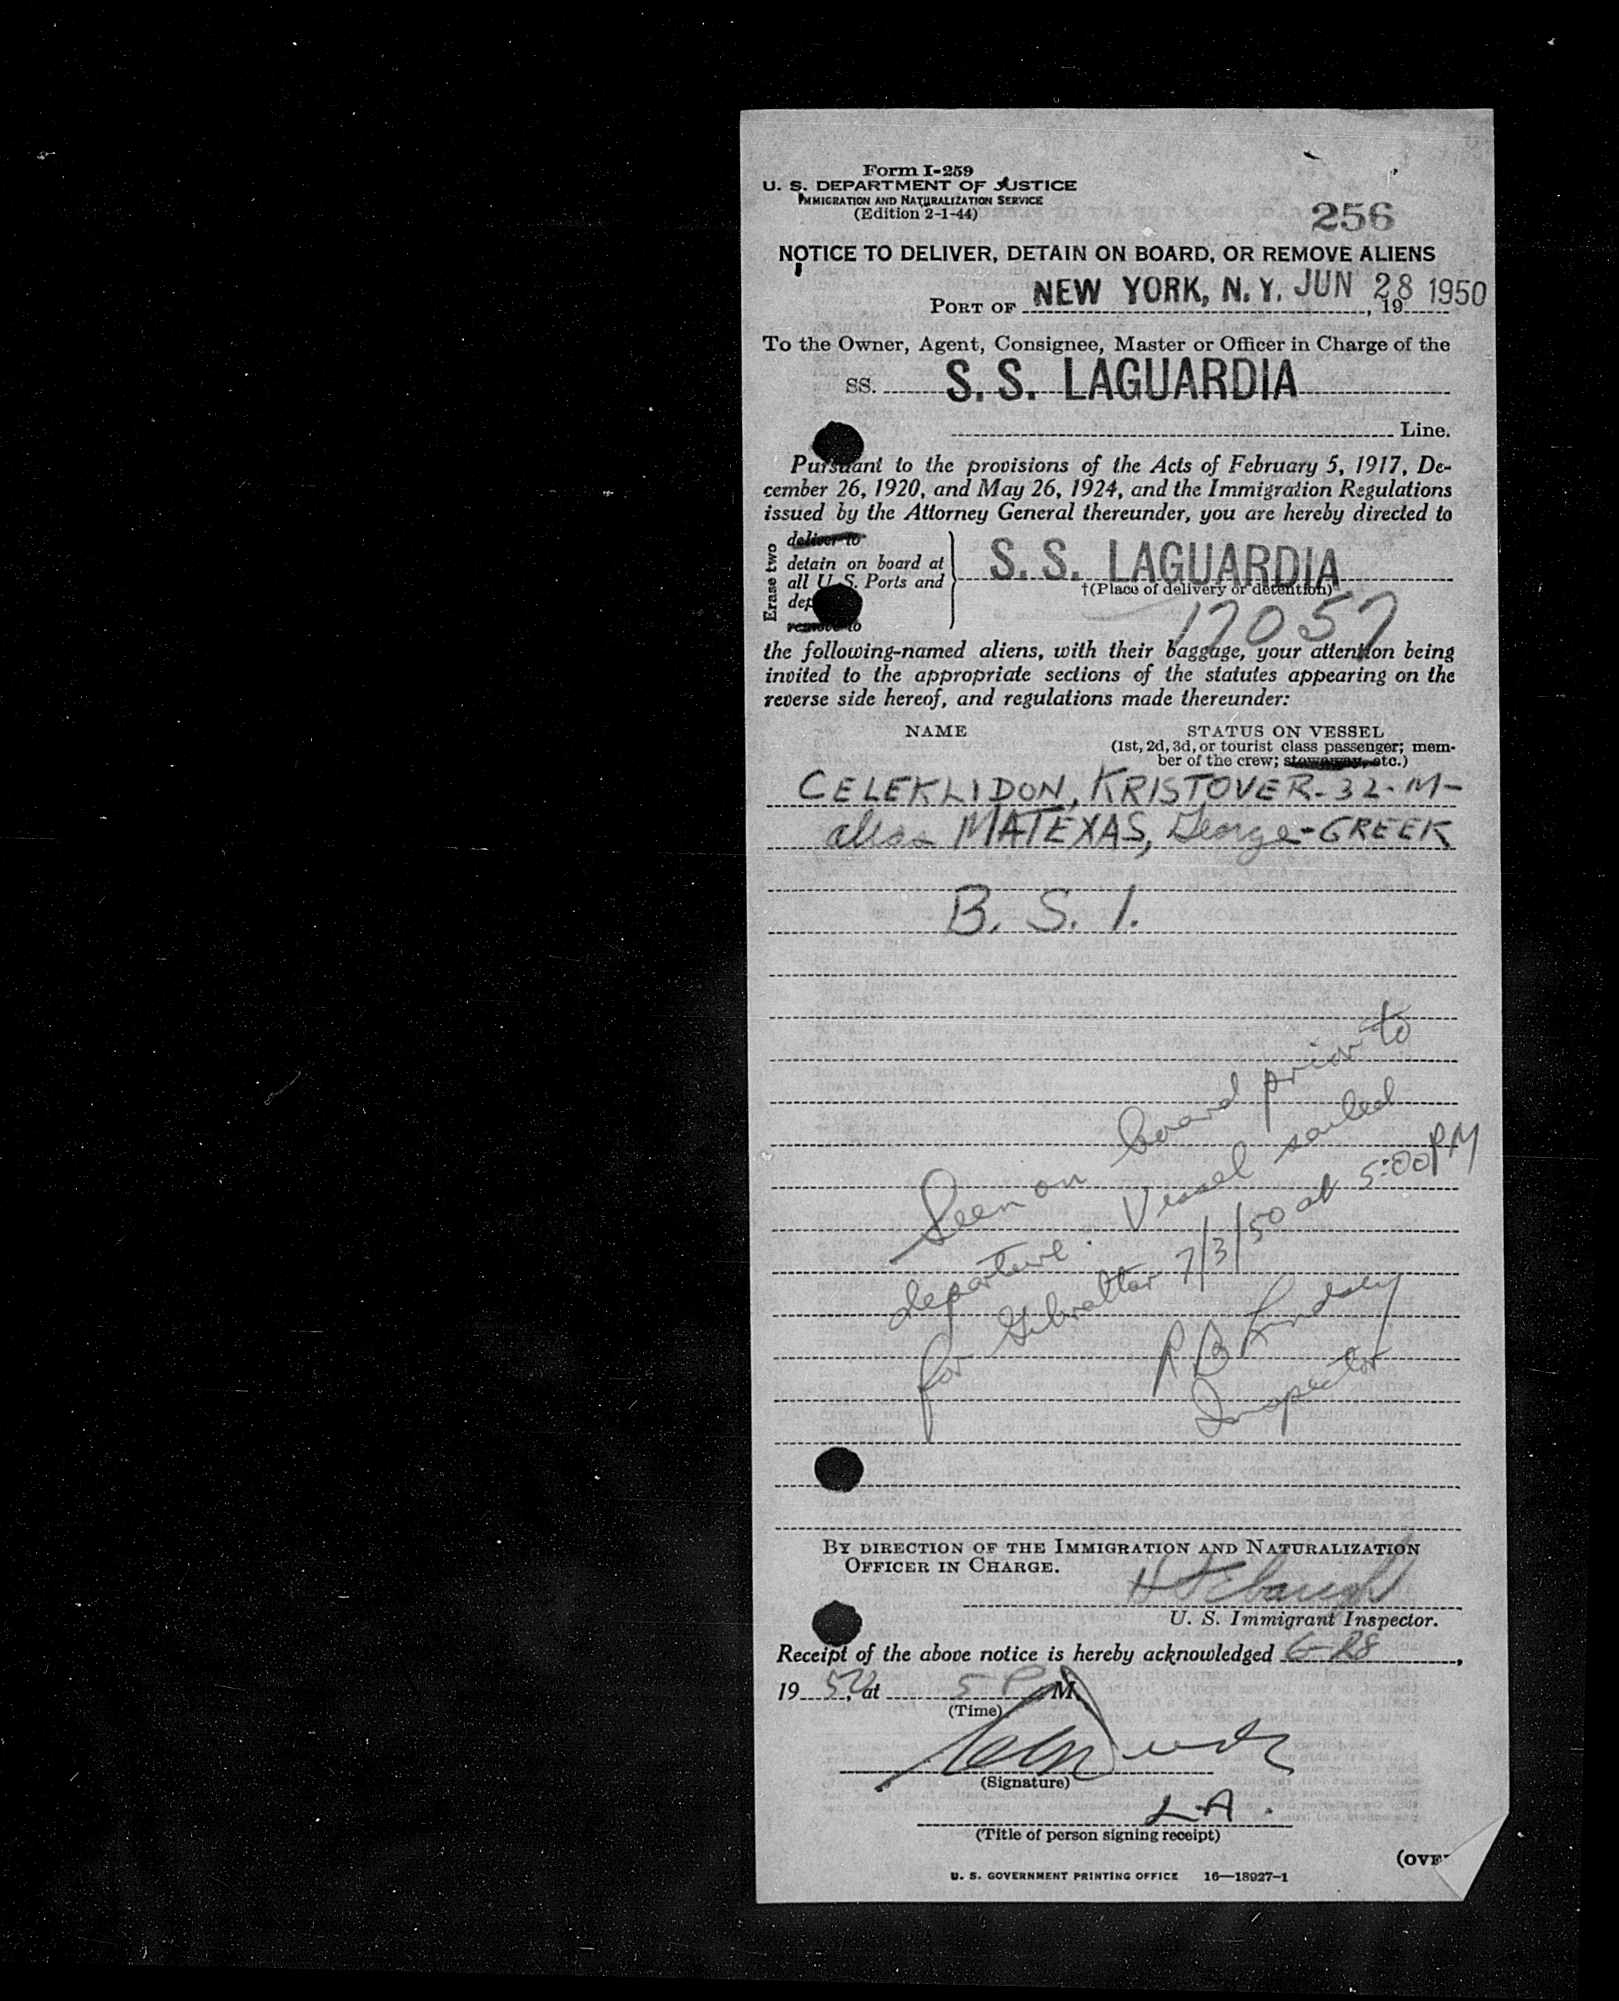 Form I-259
U. S. DEPARTMENT OF JUSTICE
IMMIGRATION AND NATURALIZATION SERVICE
(Edition 2-1-44)
256
NOTICE TO DELIVER, DETAIN ON BOARD, OR REMOVE ALIENS
PORT OF NEW YORK, N. Y. JUN 28 1950, 19
To the Owner, Agent, Consignee, Master or Officer in Charge of the
SS. S. S. LAGUARDIA
Line.
Pursuant to the provisions of the Acts of February 5, 1917, De-
cember 26, 1920, and May 26, 1924, and the Immigration Regulations
issued by the Attorney General thereunder, you are hereby directed to
Erase two
deliver to
detain on board at
all U. S. Ports and
dep
remove to
S. S. LAGUARDIA
†(Place of delivery or detention)
17057
the following-named aliens, with their baggage, your attention being
invited to the appropriate sections of the statutes appearing on the
reverse side hereof, and regulations made thereunder:
NAME STATUS ON VESSEL
(1st, 2d, 3d, or tourist class passenger; mem-
ber of the crew; stowaway, etc.)
CELEKLIDON, KRISTOVER-32-M-
alias MATEXAS, George-GREEK
B. S. I.
Seen on board prior to
departure. Vessel sailed
for Gibralter 7/3/50 at 5:00PM
R B Lindsey
Inspector
BY DIRECTION OF THE IMMIGRATION AND NATURALIZATION
OFFICER IN CHARGE.
U. S. Immigrant Inspector.
Receipt of the above notice is hereby acknowledged 6-28,
19 50, at 5 P M.
(Time)
(Signature)
L.A.
(Title of person signing receipt)
(OVE
U. S. GOVERNMENT PRINTING OFFICE 16—18927-1